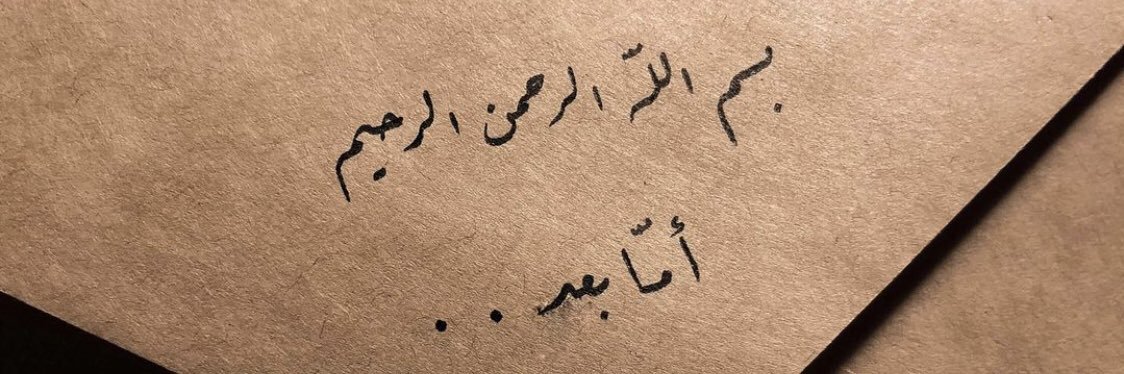 بسم اللّه الرحمن الرحيم
أمّا بعد . .